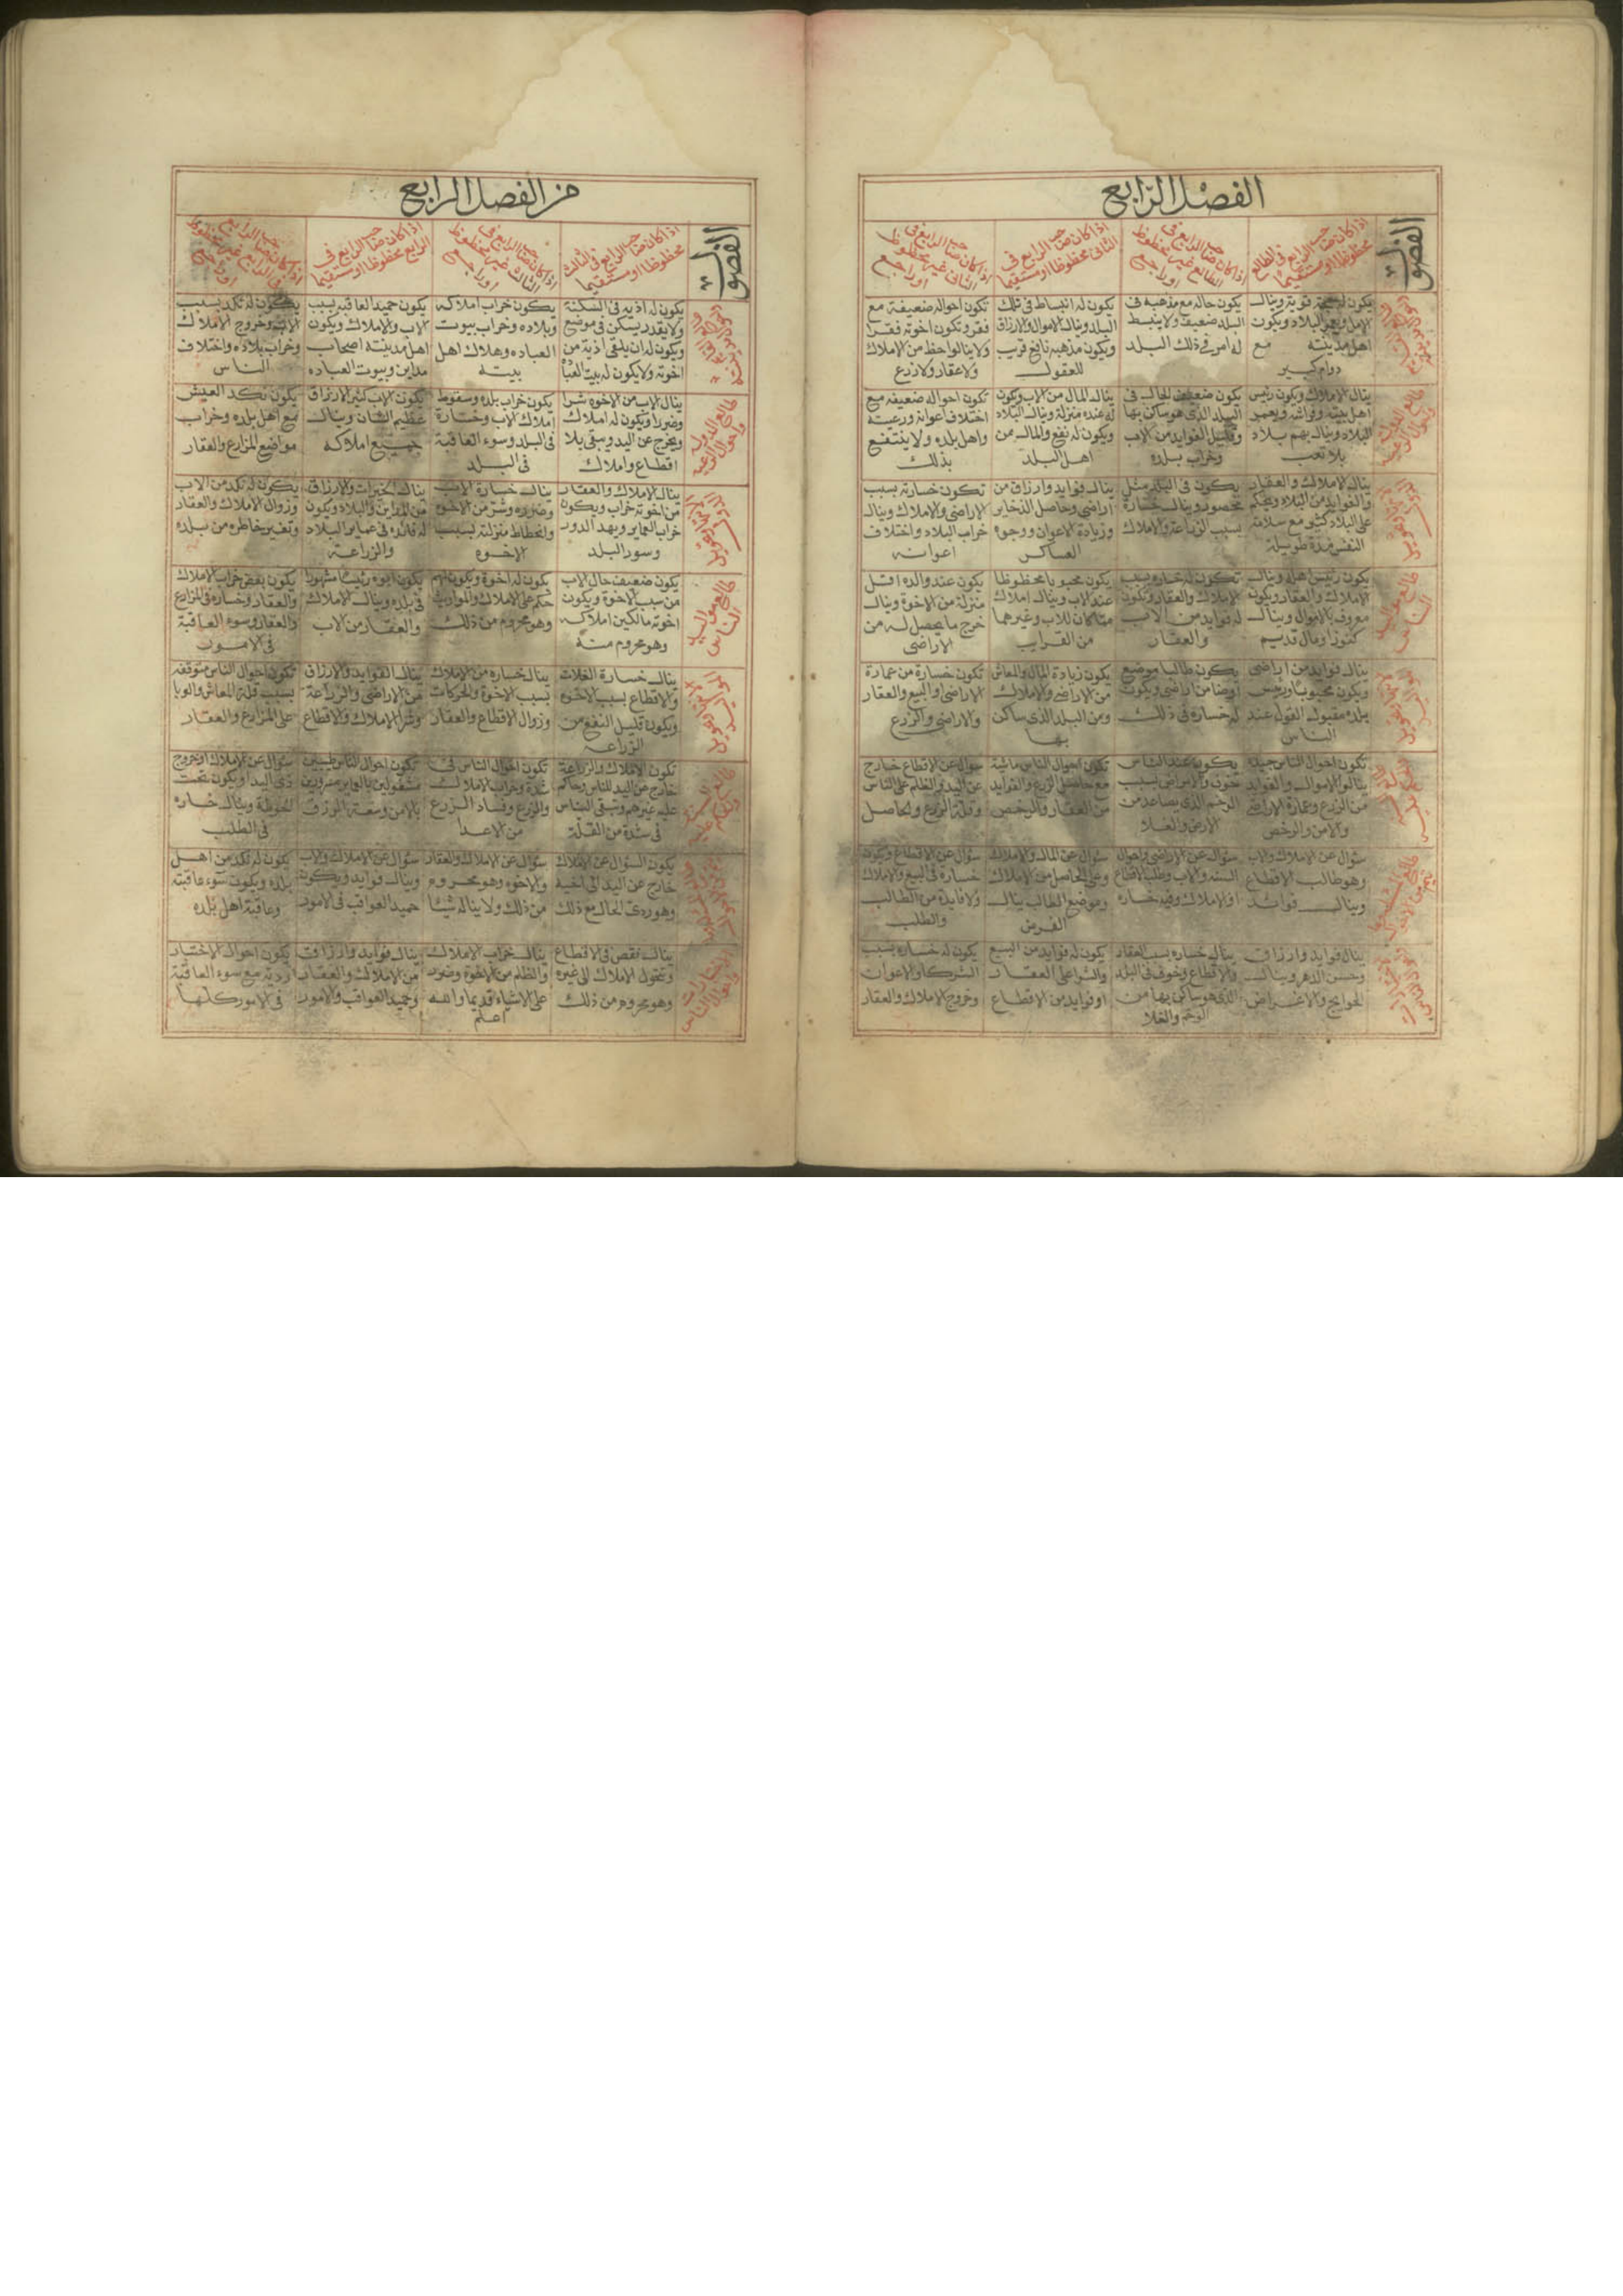 الفصل الرابع
الفصول
اذا كان صاحب الرابع في الطالع
محفوظا او مستقيما
اذا كان صاحب الرابع في
الطالع غير محفوظ
او راجع
اذا كان صاحب الرابع في
الثاني محفوظا او مستقيما
اذا كان صاحب الرابع في
الثاني غير محفوظ
او راجع
قوية وينال
الامل ويعمر البلاد ويكون
اهل مدينته مع
دوام كبير
يكون حاله مع مذهبه في
البلد ضعيف ولا ينبسط
له امر في ذلك البلد
يكون له انبساط في تلك
البلد وينال الاموال والارزاق
ويكون مذهبه نافع قريب
للعقول
تكون احواله ضعيفة مع
فقر وتكون اخوته فقرا
ولا ينالوا حظ من الاملاك
ولا عقار ولا زرع
ينال الاملاك ويكون رئيس
اهل بيته ويعمر
البلاد وينال بهم بلاد
بلا تعب
يكون ضعيف الحال في
البلد الذي هو ساكن بها
وقليل الفوايد من الاب
وخراب بلده
ينال المال من الاب ويكون
له عنده منزلة وينال البلاد
ويكون له نفع والمال من
اهل البلد
تكون احواله ضعيفه مع
اختلاف اعوانه ورعيته
واهل بلده ولا ينتفع
بذلك
ينال الاملاك والعقار
والفوايد من البلاد ويحكم
على البلاد كثير مع سلامة
النفس مدة طويلة
يكون في البلد مثل
محصور وينال خسارة
بسبب الزراعة والاملاك
ينال فوايد وارزاق من
اراضي وحاصل الذخاير
وزيادة الاعوان ووجوه
العساكر
تكون خسارته بسبب
الاراضي والاملاك وينال
خراب البلاد واختلاف
اعوانه
يكون رئيس اهله وينال
الاملاك والعقار ويكون
معروف بالاموال وينال
كنوز او مال قديم
تكون له خساره بسبب
الاملاك والعقار وتكون
له فوايد من الاب
والعقار
يكون محبوبا محظوظا
عند الاب وينال املاك
مما كان للاب وغيرهما
من القرايب
يكون عند والده اقل
منزلة من الاخوة وينال
خرج ما يحصل له من
الاراضي
ينال فوايد من اراضي
ويكون محبوبا ورئيس
بلده مقبول القول عند
الناس
يكون طالبا موضع
او ضامن اراضي ويكون
له خساره في ذلك
يكون زيادة المال والمعاش
من الاراضي والاملاك
ومن البلد الذي ساكن
بها
تكون خسارة من عمارة
الاراضي او البيع والعقار
والاراضي والزرع
تكون احوال الناس جيدة
ينالوا الاموال والفوايد
من الزرع وعمارة الاراضي
والامن والرخص
يكون عند الناس
خوف والامراض بسبب
الوخم الذي يصاعد من
الارض والغلا
تكون احوال الناس ماشية
مع حاصل الزرع والفوايد
من العقار والرخص
سؤال عن الاقطاع خارج
عن اليد والظلم على الناس
وقلة الزرع والحاصل
سؤال عن الاملاك والاب
وهو طالب الاقطاع
وينال فوائد
سؤال عن الاراضي واحوال
السنة والاب وطلب الاقطاع
او الاملاك وفيه خساره
سؤال عن المال والاملاك
وعلى الحاصل من الاملاك
وموضع الطالب ينال
الغرض
سؤال عن الاقطاع ويكون
خسارة في البيع والاملاك
ولا فايدة من الطالب
والطلب
ينال فوايد وارزاق
وحسن الدهر وينال
الحوايج والاغراض
ينال خساره بسبب العقار
والاقطاع وخوف في البلد
الذي هو ساكن بها من
الوخم والغلا
يكون له فوايد من البيع
والشرا على العقار
او فوايد من الاقطاع
يكون له خساره بسبب
الشركا والاعوان
وخروج الاملاك والعقار
من الفصل الرابع
الفصول
اذا كان صاحب الرابع في الثالث
محفوظا او مستقيما
اذا كان صاحب الرابع في
الثالث غير محفوظ
او راجع
اذا كان صاحب الرابع في
الرابع محفوظا او مستقيما
اذا كان صاحب الرابع
في الرابع غير محفوظ
او راجع
يكون له اذيه في السكينة
ولا يقدر يسكن في موضع
ويكون له ان يلقى اذية من
اخوته ولا يكون له بيت العباده
يكون خراب املاكه
وبلاده وخراب بيوت
العباده وهلاك اهل
بيته
يكون حميد العاقبه بسبب
الاب والاملاك ويكون
اهل مدينته اصحاب
مداين وبيوت العباده
يكون له نكد بسبب
الاب وخروج الاملاك
وخراب بلاده واختلاف
الناس
ينال الاب من الاخوه شرا
وضررا ويكون له املاك
ويخرج عن اليد ويبقى بلا
اقطاع واملاك
يكون خراب بلده وسقوط
املاك الاب وخسارة
في البلد وسوء العاقبة
في البلد
يكون الاب كثير الارزاق
عظيم الشان وينال
جميع املاكه
يكون نكد العيش
مع اهل بلده وخراب
مواضع المزارع والعقار
ينال الاملاك والعقار
من اخوته خراب ويكون
خراب العماير ويهد الدور
وسور البلد
ينال خسارة الاب
وضرره وشر من الاخوه
وانحطاط منزلته بسبب
الاخوه
ينال الخيرات والارزاق
من المداين والبلاد ويكون
له فائده في عماير البلاد
والزراعة
يكون له نكد من الاب
وزوال الاملاك والعقار
وتغير خاطره من بلده
يكون ضعيف حال الاب
من سبب الاخوة ويكون
اخوته مالكين املاكه
وهو محروم منه
يكون له اخوة ويكون لهم
حكم على الاملاك والمواريث
وهو محروم من ذلك
يكون ابوه رئيسا مشهورا
في بلده وينال الاملاك
والعقار من الاب
يكون بعض خراب الاملاك
والعقار وخساره في المزارع
والعقار وسوء العاقبة
في الامور
ينال خسارة الغلات
والاقطاع بسبب الاخوه
ويكون قليل النفع من
الزراعه
ينال خساره من الاملاك
بسبب الاخوة والحركات
وزوال الاقطاع والعقار
ينال الفوايد والارزاق
من الاراضي والزراعة
وشرا الاملاك والاقطاع
تكون احوال الناس متوقفه
بسبب قلة المعاش والوبا
على المزارع والعقار
تكون الاملاك والزراعة
خارج عن اليد للناس وحاكم
عليه غيرهم وتبقى الناس
في شدة من القلة
تكون احوال الناس في
شدة وخراب الاملاك
والزرع وفساد الزرع
من الاعدا
تكون احوال الناس طيبين
مشغولين بالعماير مسرورين
بالامن وسعة الرزق
سؤال عن الاملاك او خروج
ذي اليد او يكون تحت
الحوطة وينال خساره
في الطلب
يكون السؤال عن الاملاك
خارج عن اليد الى اخيه
وهو ردي الحال مع ذلك
سؤال عن الاملاك والعقار
والاخوه وهو محروم
من ذلك ولا يناله شيئا
سؤال عن الاملاك والاب
وينال فوايد ويكون
حميد العواقب في الامور
يكون له نكد من اهل
بلده ويكون سوء عاقبته
وعاقبة اهل بلده
ينال نقص في الاقطاع
وتتحول الاملاك الى غيره
وهو محروم من ذلك
ينال خراب الاملاك
والظلم من الاخوة وضرر
على الاشياء قديما والله
اعلم
ينال فوايد وارزاق
من الاملاك والعقار
وحميد العواقب والامور
يكون احوال الاختيار
ردية مع سوء العاقبة
في الامور كلها